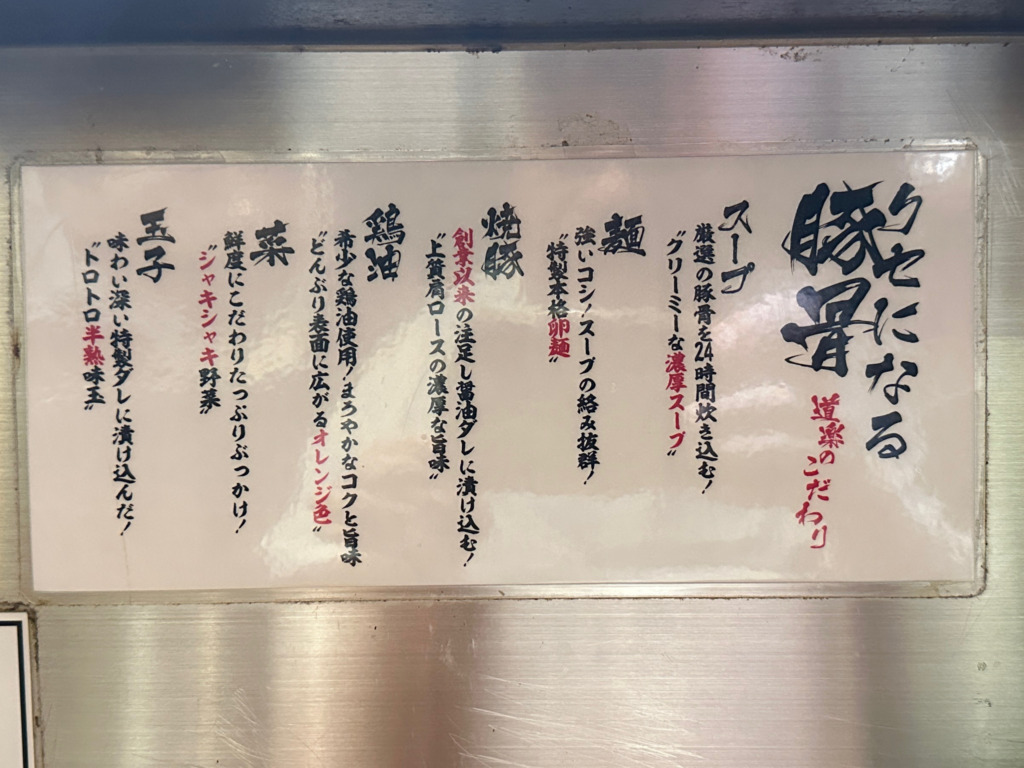 クセになる
豚骨
道楽のこだわり
スープ
厳選の豚骨を24時間炊き込む！
"クリーミーな濃厚スープ"
麺
強いコシ！スープの絡み抜群！
"特製本格卵麺"
焼豚
創業以来の注足し醤油ダレに漬け込む！
"上質肩ロースの濃厚な旨味"
鶏油
希少な鶏油使用！まろやかなコクと旨味
"どんぶり表面に広がるオレンジ色"
菜
鮮度にこだわりたっぷりぶっかけ！
"シャキシャキ野菜"
玉子
味わい深い特製ダレに漬け込んだ！
"トロトロ半熟味玉"